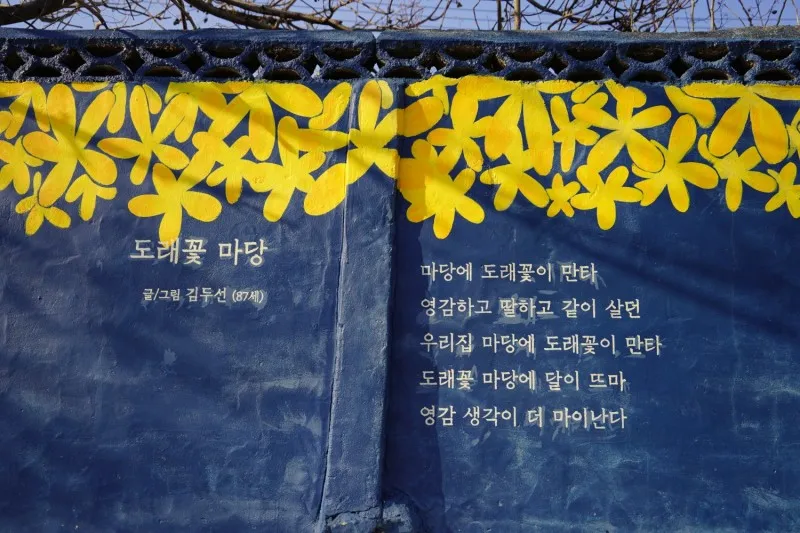 도래꽃 마당
글/그림 김두선 (87세)
마당에 도래꽃이 만타
영감하고 딸하고 같이 살던
우리집 마당에 도래꽃이 만타
도래꽃 마당에 달이 뜨마
영감 생각이 더 마이난다